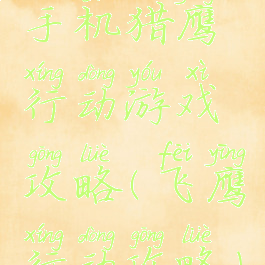 手机猎鹰
xíng dòng yóu xì
行动游戏
gōng lüè fēi yīng
攻略(飞鹰
xíng dòng gōng lüè
行动攻略)